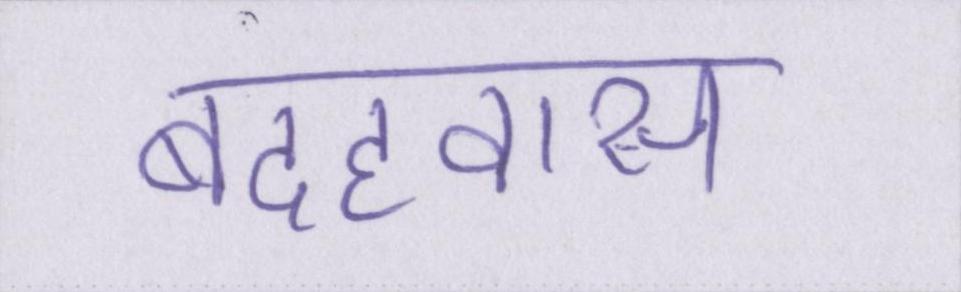 बदहवास